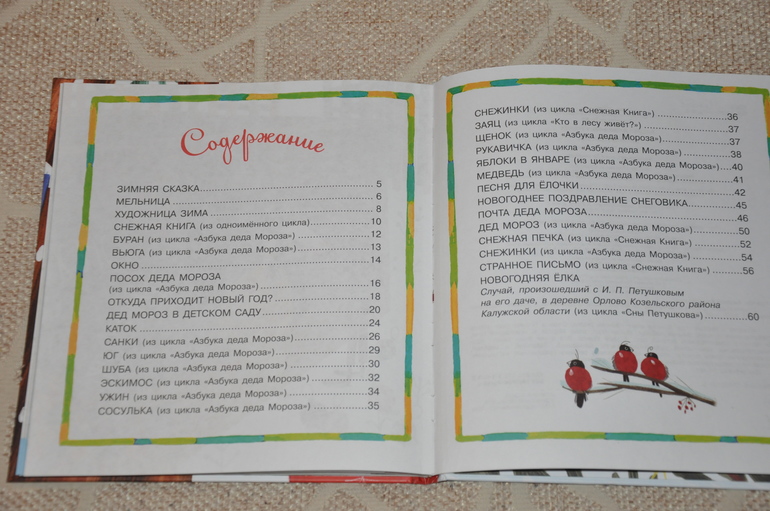 Содержание
ЗИМНЯЯ СКАЗКА 5
МЕЛЬНИЦА 6
ХУДОЖНИЦА ЗИМА 8
СНЕЖНАЯ КНИГА (из одноимённого цикла) 10
БУРАН (из цикла «Азбука деда Мороза») 12
ВЬЮГА (из цикла «Азбука деда Мороза») 13
ОКНО 14
ПОСОХ ДЕДА МОРОЗА
(из цикла «Азбука деда Мороза») 16
ОТКУДА ПРИХОДИТ НОВЫЙ ГОД? 18
ДЕД МОРОЗ В ДЕТСКОМ САДУ 20
КАТОК 24
САНКИ (из цикла «Азбука деда Мороза») 26
ЮГ (из цикла «Азбука деда Мороза») 29
ШУБА (из цикла «Азбука деда Мороза») 30
ЭСКИМОС (из цикла «Азбука деда Мороза») 32
УЖИН (из цикла «Азбука деда Мороза») 34
СОСУЛЬКА (из цикла «Азбука деда Мороза») 35
СНЕЖИНКИ (из цикла «Снежная Книга») 36
ЗАЯЦ (из цикла «Кто в лесу живёт?») 37
ЩЕНОК (из цикла «Азбука деда Мороза») 37
РУКАВИЧКА (из цикла «Азбука деда Мороза») 38
ЯБЛОКИ В ЯНВАРЕ (из цикла «Азбука деда Мороза») 40
МЕДВЕДЬ (из цикла «Азбука деда Мороза») 41
ПЕСНЯ ДЛЯ ЁЛОЧКИ 42
НОВОГОДНЕЕ ПОЗДРАВЛЕНИЕ СНЕГОВИКА 45
ПОЧТА ДЕДА МОРОЗА 46
ДЕД МОРОЗ (из цикла «Азбука деда Мороза») 50
СНЕЖНАЯ ПЕЧКА (из цикла «Снежная Книга») 52
СНЕЖИНКИ (из цикла «Азбука деда Мороза») 54
СТРАННОЕ ПИСЬМО (из цикла «Снежная Книга») 56
НОВОГОДНЯЯ ЁЛКА
Случай, произошедший с И. П. Петушковым
на его даче, в деревне Орлово Козельского района
Калужской области (из цикла «Сны Петушкова») 60